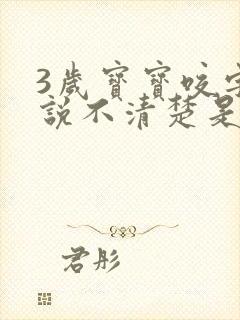 3歲寶寶咬字
說不清楚是
君彤